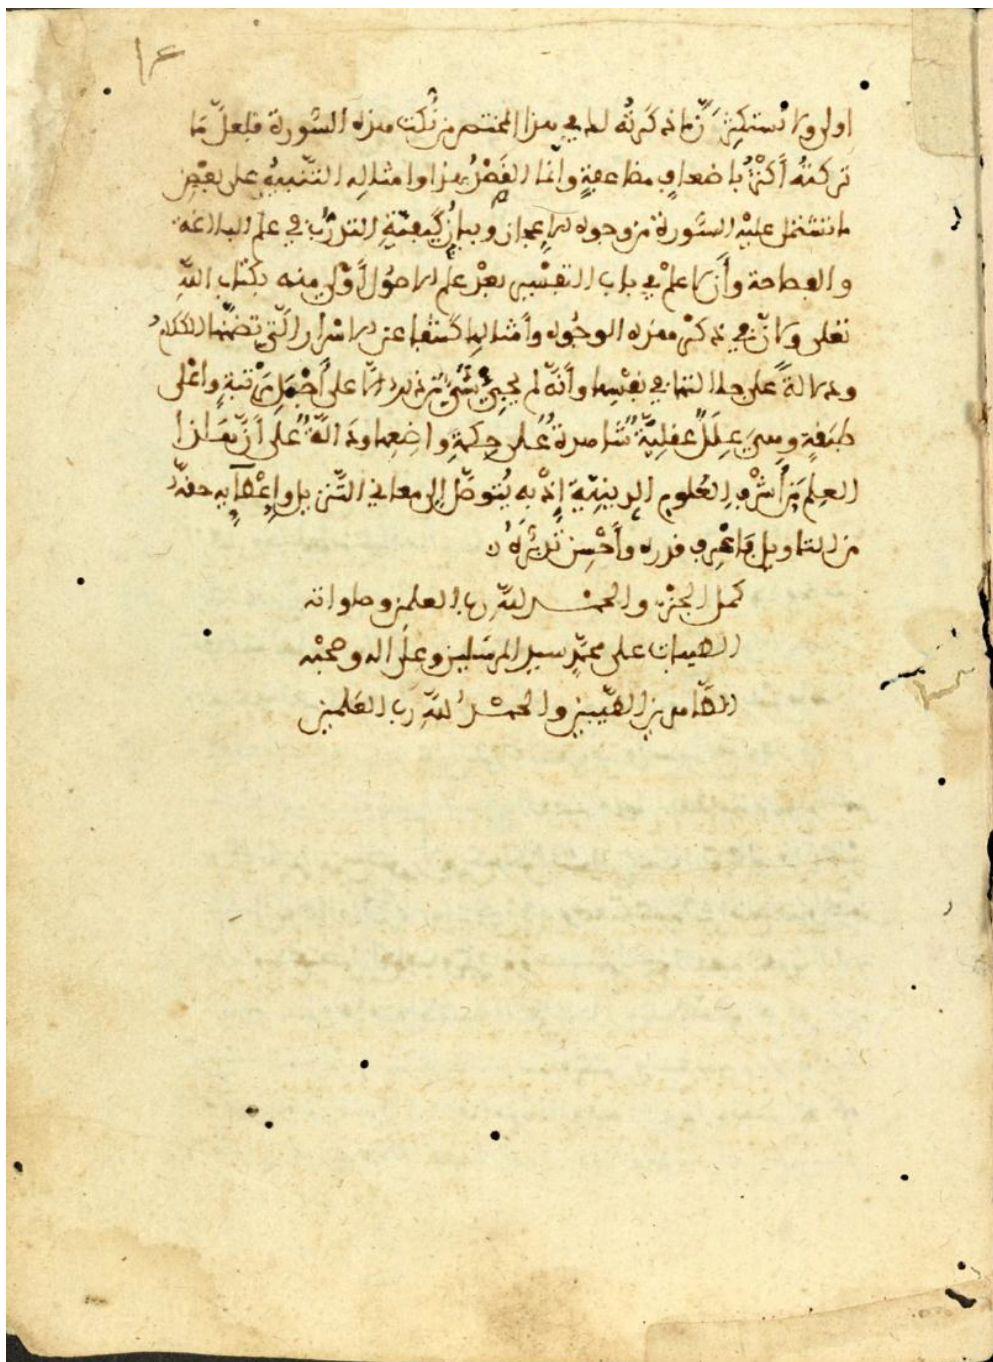 ١٤
اولى ولا تستكثرنّ ما ذكرتُه لك في هذا المختصر من نُكت هذه السُّورة فلعلّ مَا
تركتهُ أكثرُ باضعاف مضاعفةٍ وانّما الغَرضُ بهذا وامثاله التّنبيهُ على بعْضِ
ما تشتمل عليْه السُّورة من وجوه الاعجاز وبيانُ كيفيّةِ التدرّب في علم البلاغة
والفصاحة وأن لا علمَ في باب التفسير بعْد علم الاصُول أوْلى منه بكتاب اللّه
تعلى ولانّ في ذكر هذه الوجُوه وأمثالها كشفا عن الاسْرار الّتي تضمّنها الكلامُ
ودلالةً على جلالتها في نفسها وأنّه لم يجئْ شيْءٌ من ذلك إلّا على أجْمل مرْتبةٍ واعْلى
طبقةٍ وهي عِلَلٌ عقليّةٌ شاهدةٌ على حكمةِ واضعها ودَالّةٌ على أنّ هَذا
العِلم من أشْرف العُلوم الدينيّة إذْ به يُتوصّل إلى معاني التّنزيل وإعْطايه حقّه
من التاويل فاعْرف قدره وأحْسِن تدبّرَهُ
كمل الجزء والحمد للّه رب العلمين وصلواته
الطيبات على محمّد سيد المرسَلين وعلى اله وصحبْه
الطّاهرين الطّيّبين والحمْدُ للّه رب العَلمين